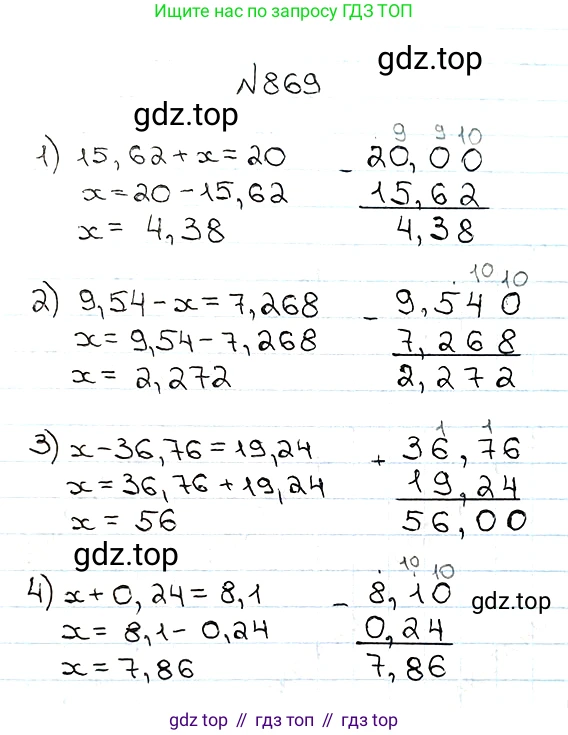 Ищите нас по запросу ГДЗ ТОП
gdz.top
№869
gdz.top
1) 15,62 + x = 20
x = 20 - 15,62
x = 4,38
9 9 10
- 20,00
15,62
4,38
2) 9,54 - x = 7,268
x = 9,54 - 7,268
x = 2,272
10 10
- 9,540
7,268
2,272
3) x - 36,76 = 19,24
x = 36,76 + 19,24
x = 56
1 1
+ 36,76
19,24
56,00
gdz.top
4) x + 0,24 = 8,1
x = 8,1 - 0,24
x = 7,86
10 10
- 8,10
0,24
7,86
gdz.top
gdz top // гдз топ // gdz.top